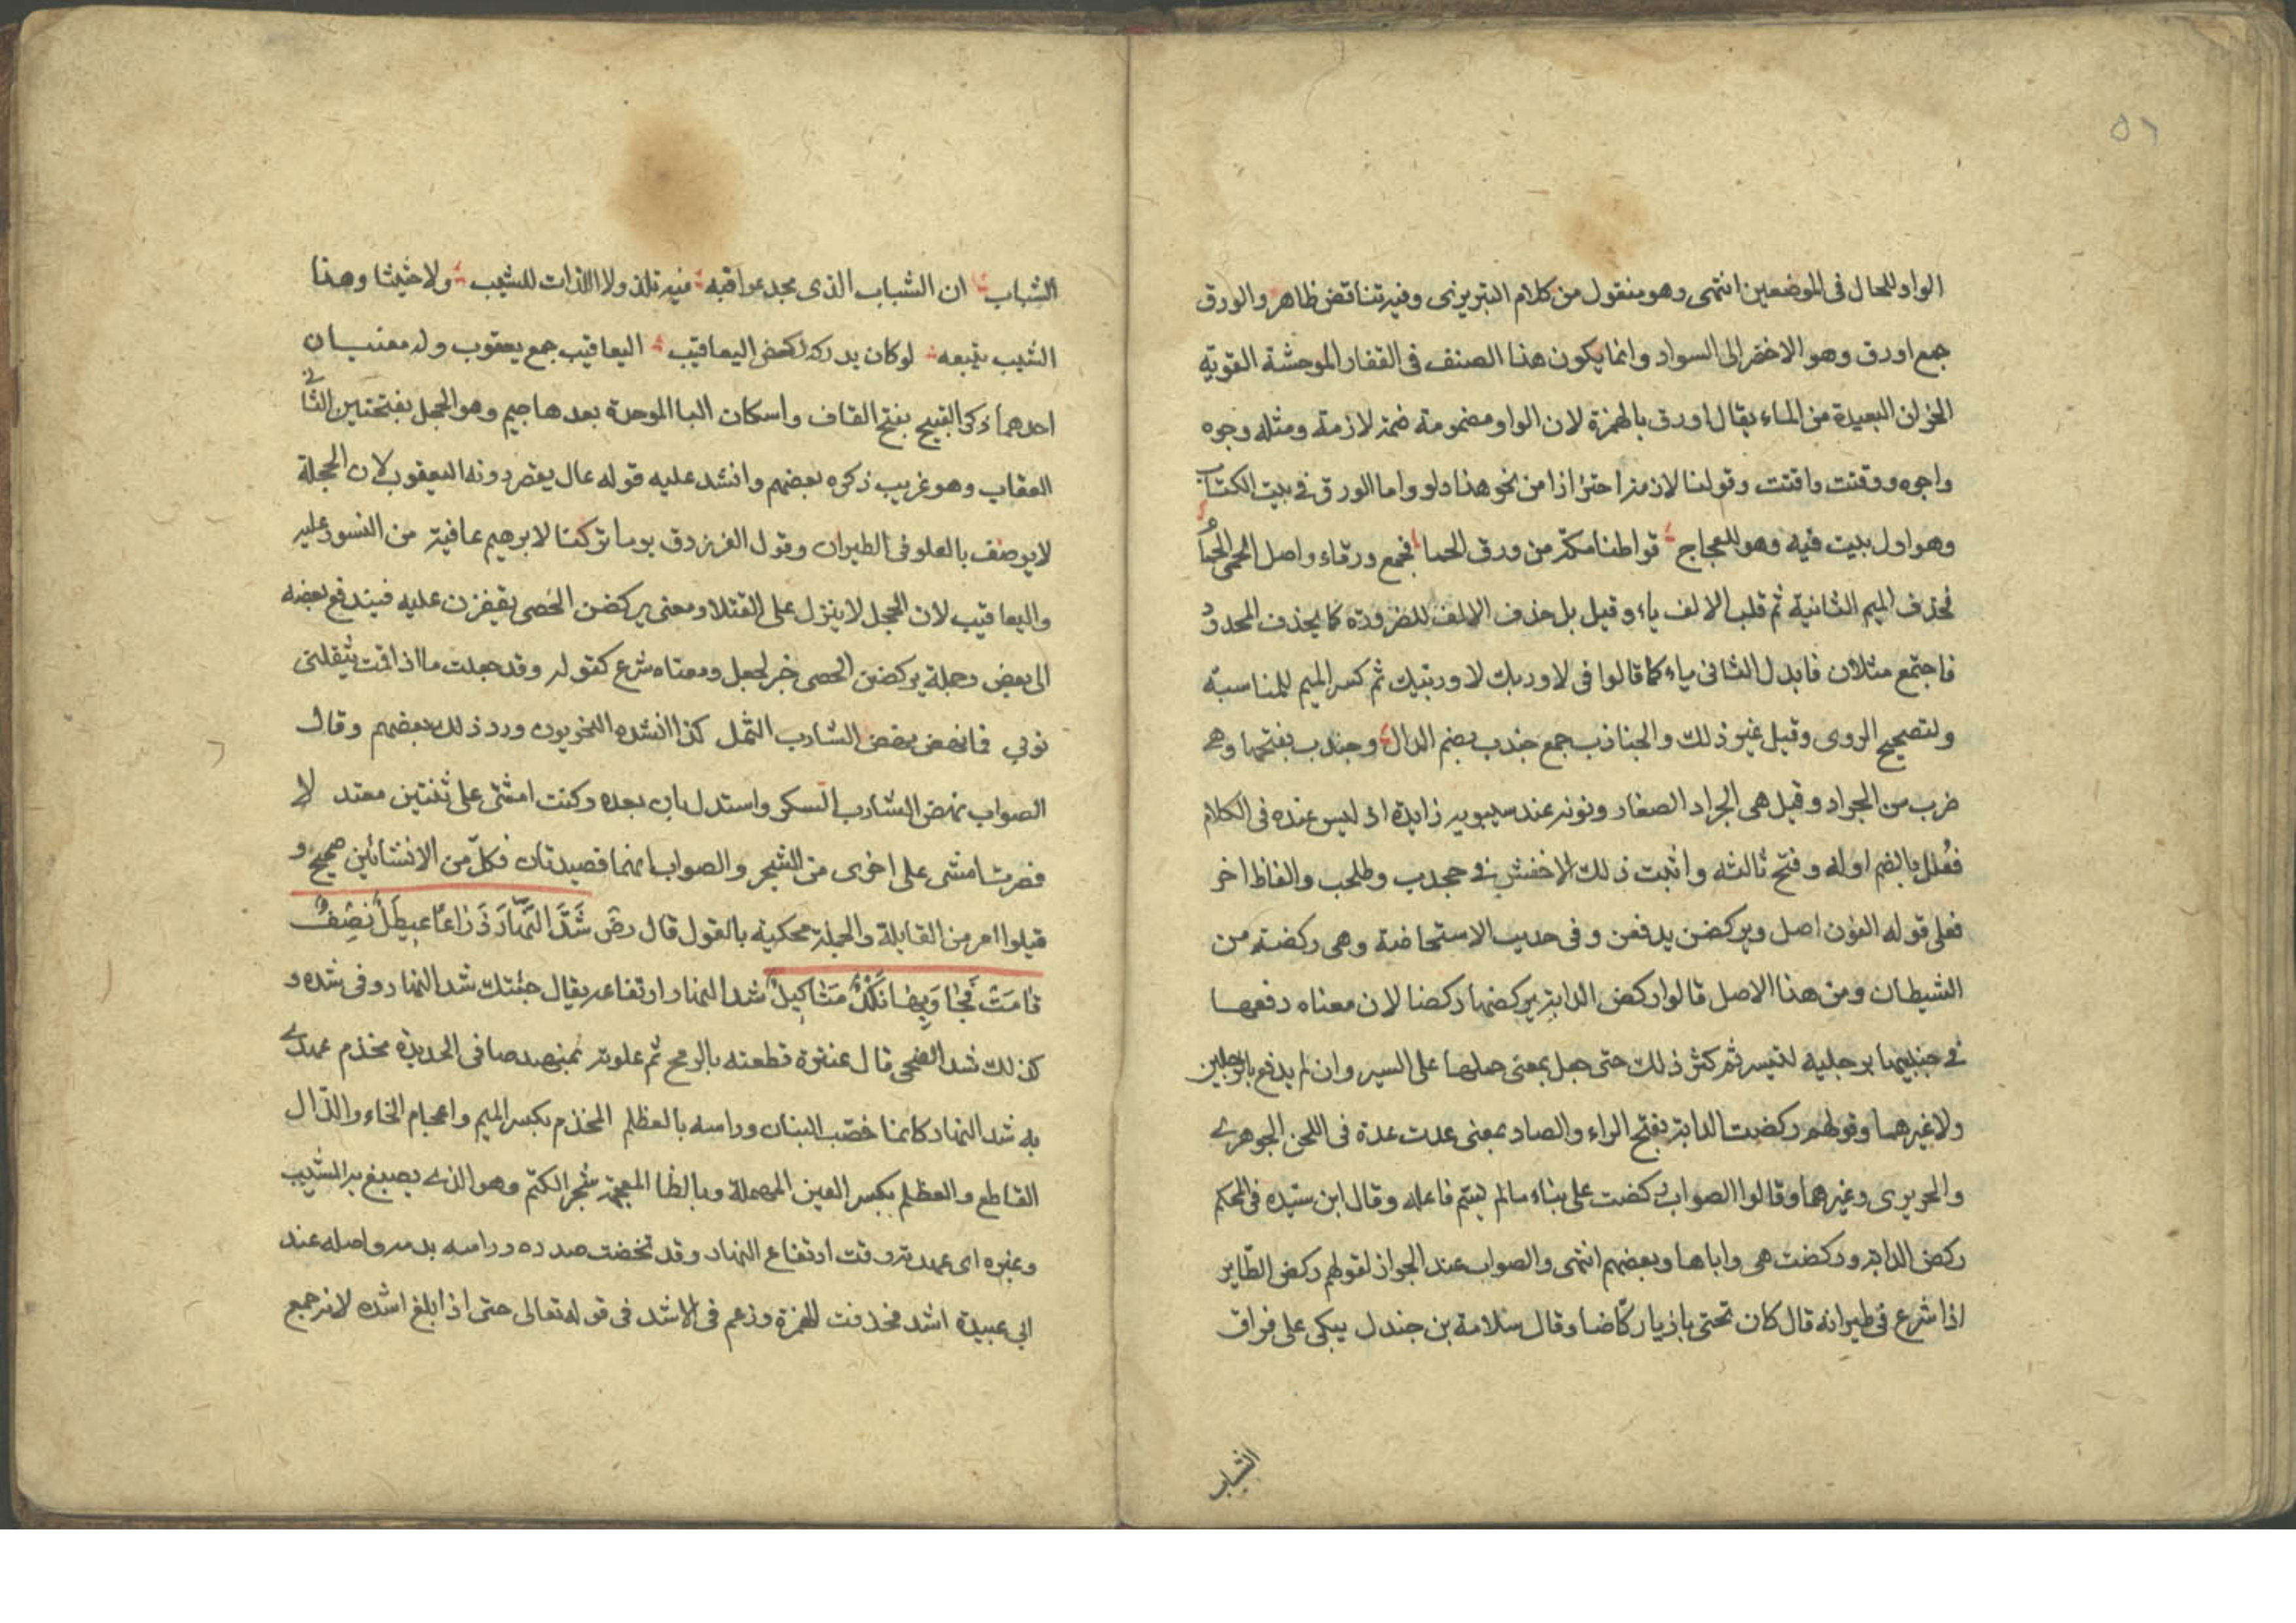 ٥٦
الواو للحال فى الموضعين انتهى وهو منقول من كلام التبريزى وفيه تناقض ظاهر والورق
جمع اورق وهو الاخضر الى السواد وانما يكون هذا الصنف فى القفار الموحشة القوية
البعيدة من الماء يقال اورق بالهمزة لان الواو مضمومة ضمة لازمة ومثله وجوه
واجوه ووقتت واقتت وقولنا لازمة احترازا من نحو هذا دلو واما الورق فى بيت الكتاب
وهو اول بيت فيه وهو للعجاج قواطنا مكة من ورق الحما فجمع ورقاء واصل الحمى الحمام
فحذف الميم الثانية ثم قلب الالف ياء وقيل بل حذف الالف للضرورة كما يحذف الممدود
فاجتمع مثلان فابدل الثانى ياء كما قالوا فى لا وربك لا وربيك ثم كسر الميم للمناسبة
ولتصحيح الروى وقيل غير ذلك والجنادب جمع جندب بضم الدال وجندب بفتحها وهى
ضرب من الجراد وقيل هى الجراد الصغار ونونه عند سيبويه زايدة اذ ليس عنده فى الكلام
فعلل بالضم اوله وفتح ثالثه واثبت ذلك الاخفش فى جحدب وطحلب والفاظ اخر
فعلى قوله النون اصل ويركضن يدفعن وفى حديث الاستحاضة وهى ركضة من
الشيطان ومن هذا الاصل قالوا ركض الدابة يركضها ركضا لان معناه دفعها
فى جنبيها برجليه لتسير ثم كثر ذلك حتى جعل بمعنى حملها على السير وان لم يدفع بالرجلين
ولا غيرهما وقولهم ركضت الدابة بفتح الراء والصاد بمعنى عدت عدة فى اللحن الجوهرى
والحريرى وغيرهما وقالوا الصواب ركضت على بناء ما لم يسم فاعله وقال ابن سيده فى المحكم
ركض الدابة وركضت هى واباها وبعضهم انتهى والصواب عند الجواز لقولهم ركض الطاير
اذا شرع فى طيرانه قال كان تحتى بازيا ركاضا وقال سلامة بن جندل يبكى على فراق
الشباب
الشباب ان الشباب الذى مجد عواقبه فيه نلذ ولا اللذات للشيب ولا حثيثا وهذا
الشيب يتبعه لو كان يدركه ركض اليعاقيب اليعاقيب جمع يعقوب وله معنيان
احدهما ذكر القبج بفتح القاف واسكان البا الموحدة بعدها جيم وهو الحجل بفتحتين الثانى
العقاب وهو غريب ذكره بعضهم وانشد عليه قوله عال يقصر دونه اليعقوب لان الحجلة
لا يوصف بالعلو فى الطيران وقول الفرزدق يوما تركنا لابرهيم عافية من النسور عليه
واليعاقيب لان الحجل لا ينزل على القتلا ومعنى يركضن الحصى يقفزن عليه فيندفع بعضه
الى بعض وجملة يركضن الحصى خبر لجعل ومعناه شرع كقوله وقد جعلت ما اذا قمت يثقلنى
ثوبي فانهض نهض الشارب الثمل كذا انشده النحويون ورد ذلك بعضهم وقال
الصواب نهض الشارب السكر واستدل بان بعده وكنت امشى على ثنتين معتدلا
فصرت امشى على اخرى من الشجر والصواب انهما قصيدتان فكل من الانشائين صحيح و
قيلوا امر من القايلة والجملة محكية بالقول قال رض شَدَّ النَّهارَ ذِرَاعًا عيطلٍ نصفٍ
قامت فجاوبها نكدٌ مثاكيلُ شد النهار ارتفاعه يقال جئتك شد النهار وفى شده و
كذلك شد الضحى قال عنترة فطعنته بالرمح ثم علوته بمهند صافى الحديدة مخذم عهدى
به شد النهار كانما خضب البنان وراسه بالعظلم المخذم بكسر الميم واعجام الخاء والذال
القاطع والعظلم بكسر العين المهملة وبالظا المعجمة شجر الكتم وهو الذى يصبغ به الشيب
وغيره اى عهدته وقت ارتفاع النهار وقد تخضت صدره وراسه بدمه واصله عند
ابى عبيدة اشد فحذفت الهمزة وزعم فى الاشد فى قوله تعالى حتى اذا بلغ اشده لانه جمع